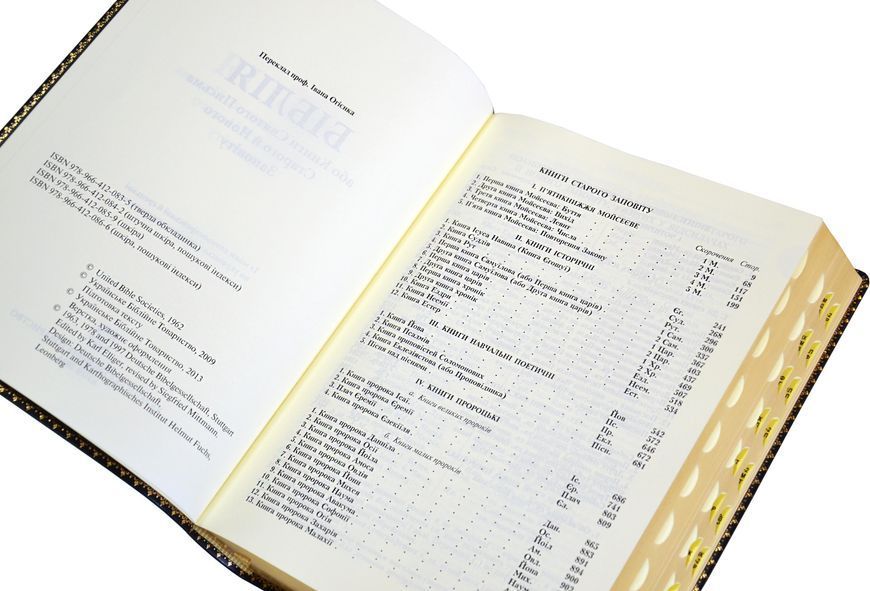 Переклад проф. Івана Огієнка
ISBN 978-966-412-083-5 (тверда обкладинка)
ISBN 978-966-412-084-2 (штучна шкіра, пошукові індекси)
ISBN 978-966-412-085-9 (шкіра)
ISBN 978-966-412-086-6 (шкіра, пошукові індекси)
© United Bible Societies, 1962
© Українське Біблійне Товариство, 2009
Підготовка тексту
© Українське Біблійне Товариство, 2013
Верстка, художнє оформлення
© 1963, 1978 and 1997 Deutsche Bibelgesellschaft, Stuttgart
Edited by Karl Elliger, revised by Siegfried Mittmann,
Design, Deutsche Bibelgesellschaft,
Stuttgart, and Kartographisches Institut Helmut Fuchs,
Leonberg
КНИГИ СТАРОГО ЗАПОВІТУ
Скорочення Стор.
I. П'ЯТИКНИЖЖЯ МОЙСЕЄВЕ
1. Перша книга Мойсеєва: Буття 1 М. 9
2. Друга книга Мойсеєва: Вихід 2 М. 68
3. Третя книга Мойсеєва: Левит 3 М. 117
4. Четверта книга Мойсеєва: Числа 4 М. 151
5. П'ята книга Мойсеєва: Повторення Закону 5 М. 199
II. КНИГИ ІСТОРИЧНІ
1. Книга Ісуса Навина (Книга Єгошуї) Єг. 241
2. Книга Суддів Суд. 268
3. Книга Рут Рут. 296
4. Перша книга Самуїлова (або Перша книга царів) 1 Сам. 300
5. Друга книга Самуїлова (або Друга книга царів) 2 Сам. 337
6. Перша книга царів 1 Цар. 367
7. Друга книга царів 2 Цар. 403
8. Перша книга хронік 1 Хр. 437
9. Друга книга хронік 2 Хр. 469
10. Книга Ездри Езд. 507
11. Книга Неемії Неем. 518
12. Книга Естер Ест. 534
III. КНИГИ НАВЧАЛЬНІ ПОЕТИЧНІ
1. Книга Йова Йов 542
2. Книга Псалмів Пс. 572
3. Книга приповістей Соломонових Пр. 646
4. Книга Екклезіястова (або Проповідника) Екл. 672
5. Пісня над піснями Пісн. 681
IV. КНИГИ ПРОРОЦЬКІ
а. Книги великих пророків
1. Книга пророка Ісаї Іс. 686
2. Книга пророка Єремії Єр. 741
3. Плач Єремії Плач 803
4. Книга пророка Єзекіїля Єз. 809
б. Книги малих пророків
1. Книга пророка Даниїла Дан. 865
2. Книга пророка Осії Ос. 883
3. Книга пророка Йоіла Йоіл 891
4. Книга пророка Амоса Ам. 894
5. Книга пророка Овдія Овд. 900
6. Книга пророка Йони Йона 902
7. Книга пророка Михея Мих.
8. Книга пророка Наума Наум
9. Книга пророка Авакума
10. Книга пророка Софонії
11. Книга пророка Огія
12. Книга пророка Захарія
13. Книга пророка Малахії